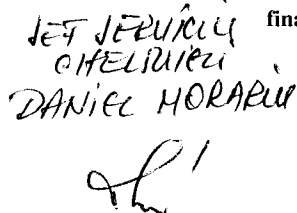 fina
ȘEF SERVICIU
CHELTUIELI
DANIEL MORARIU